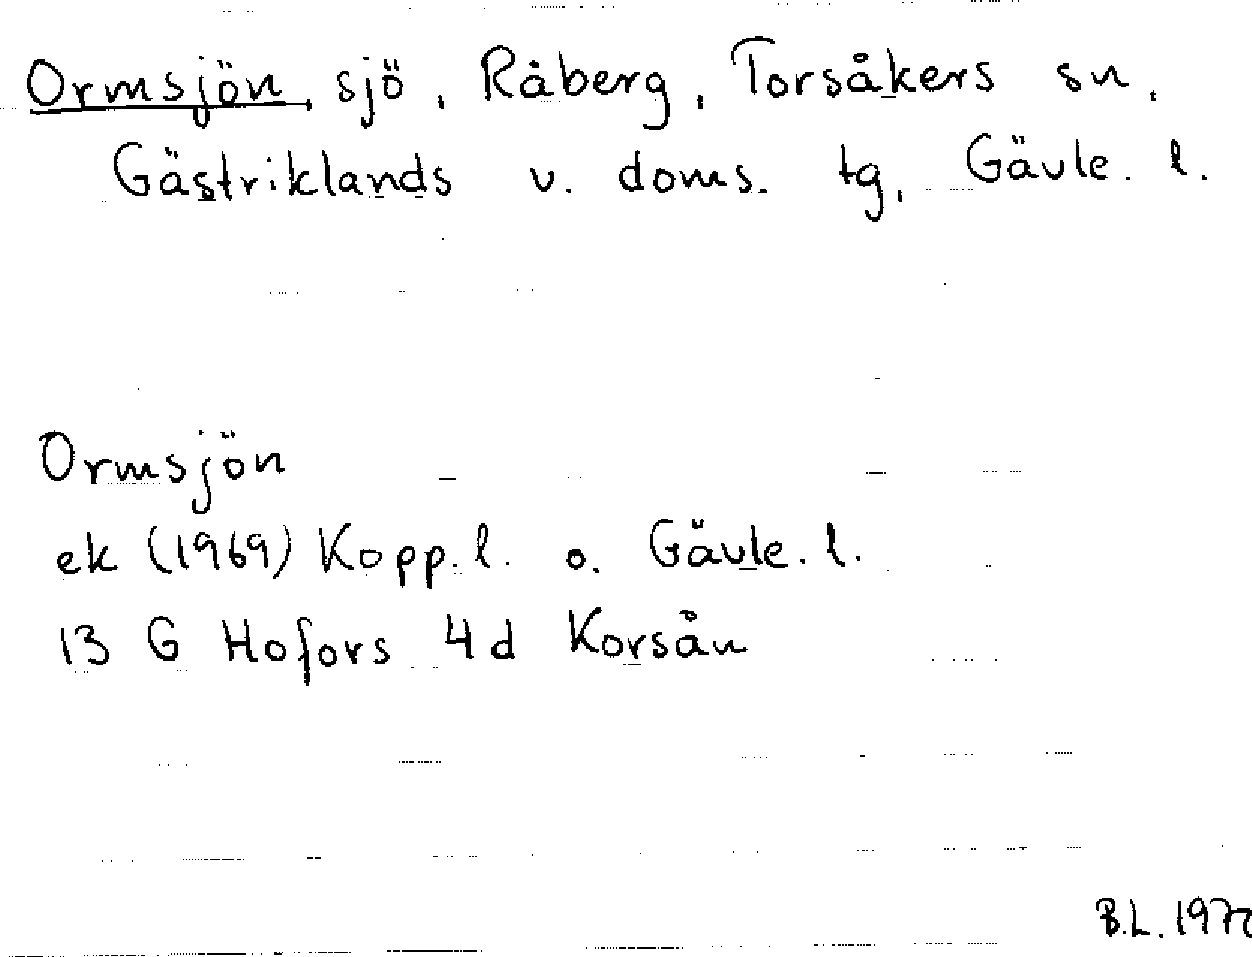 Ormsjön, sjö, Råberg, Torsåkers sn,
Gästriklands v. doms. tg, Gävle. l.
Ormsjön
ek (1969) Kopp. l. o. Gävle. l.
13 G Hofors 4d Korsån
B.L. 1977